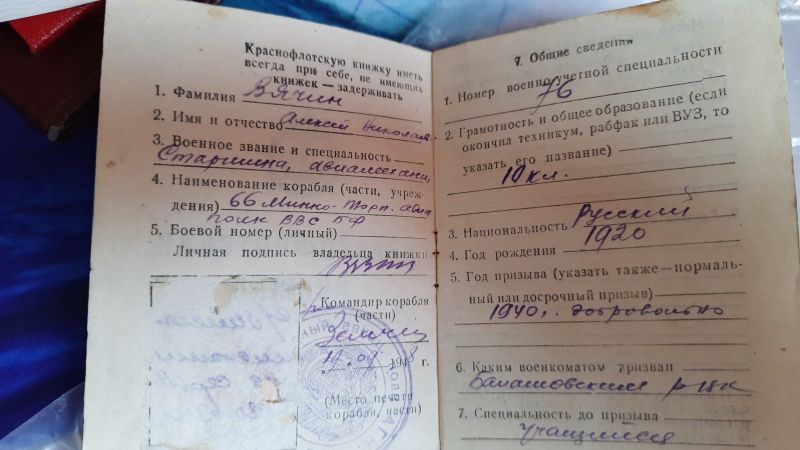 Краснофлотскую книжку иметь
всегда при себе, не имеющих
книжек — задерживать
1. Фамилия Вячин
2. Имя и отчество Алексей Николаев
3. Военное звание и специальность
Старшина, авиамеханик
4. Наименование корабля (части, учреж-
дения) 66 Минно-Торп. авиа
полк ВВС БФ
5. Боевой номер (личный)
Личная подпись владельца книжки
Командир корабля
(части)
1948 г.
(Место печати
корабля, части)
7. Общие сведения
1. Номер военно-учетной специальности
76
2. Грамотность и общее образование (если
окончил техникум, рабфак или ВУЗ, то
указать его название)
10 кл.
3. Национальность Русский
4. Год рождения 1920
5. Год призыва (указать также — нормаль-
ный или досрочный призыв)
1940 г. добровольно
6. Каким военкоматом призван
Балашовским РВК
7. Специальность до призыва
учащийся